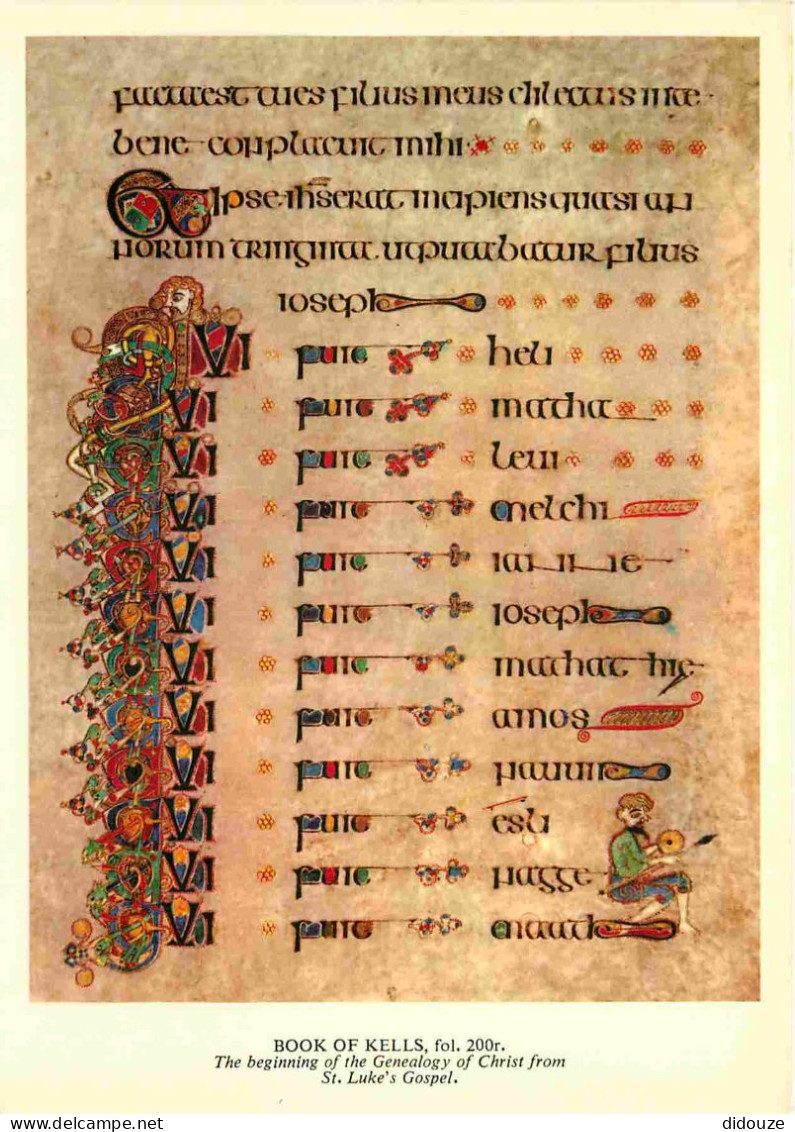 facta est tu es filius meus dilectus in te
bene conplacuit mihi
Et ipse ihs erat incipiens quasi an
norum triginta. ut putabatur filius
ioseph
QUI fuit heli
QUI fuit matha
QUI fuit leui
QUI fuit melchi
QUI fuit iannae
QUI fuit ioseph
QUI fuit mathathie
QUI fuit amos
QUI fuit nauum
QUI fuit esli
QUI fuit nagge
QUI fuit maath
BOOK OF KELLS, fol. 200r.
The beginning of the Genealogy of Christ from
St. Luke's Gospel.
didouze